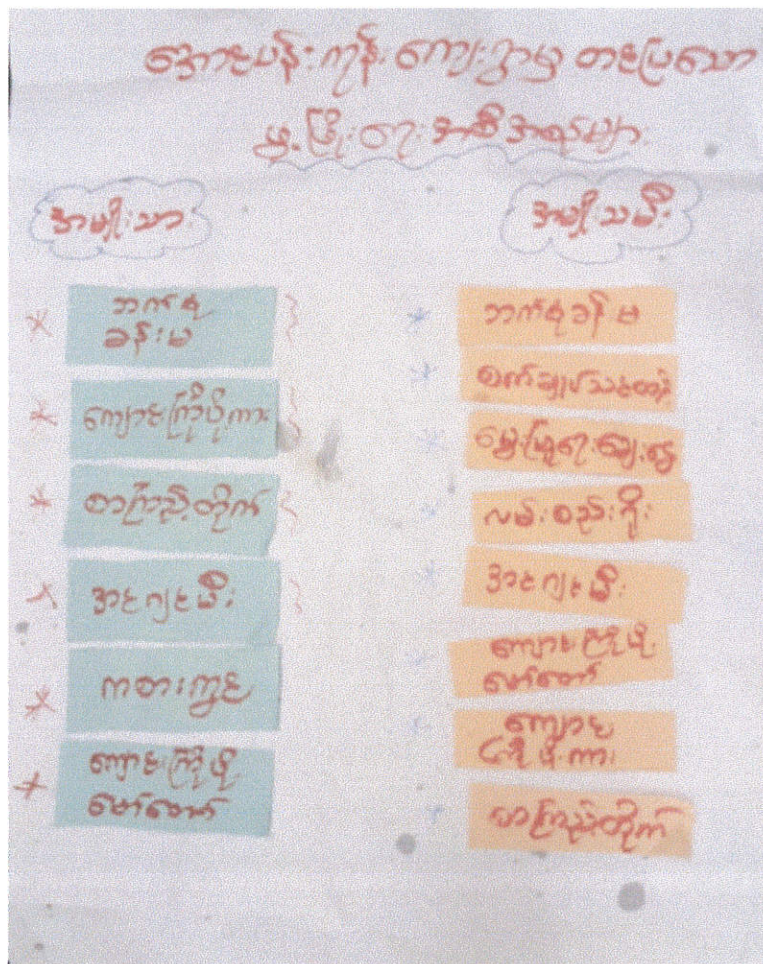 အောင်ပန်းကုန်း ကျေးရွာမှ တင်ပြသော
ဖွံ့ဖြိုးရေး အစီအစဉ်များ
အမျိုးသား
အမျိုးသမီး
ဘက်စုံ
ခန်းမ
ကျောင်းကြိုပို့ကား
စာကြည့်တိုက်
အင်ဂျင်မီး
ကစားကွင်း
ကျောင်းကြိုပို့
မော်တော်
ဘက်စုံခန်းမ
စက်ချုပ်သင်တန်း
မွေးမြူရေးချေးငွေ
လမ်းစည်းရိုး
အင်ဂျင်မီး
ကျောင်းကြိုပို့
မော်တော်
ကျောင်း
ကြိုပို့ကား
စာကြည့်တိုက်